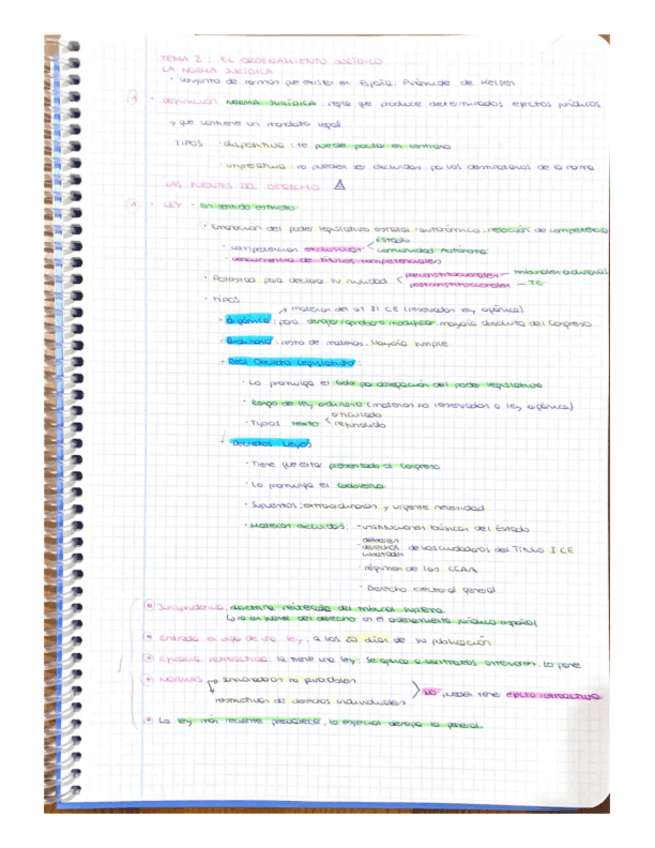 TEMA 2: EL ORDENAMIENTO JURÍDICO
LA NORMA JURÍDICA
· Conjunto de normas que existen en España. Pirámide de Kelsen
① · Definición NORMA JURÍDICA: regla que produce determinados efectos jurídicos
y que contiene un mandato legal.
TIPOS · dispositiva: se puede pactar en contrario
· imperativa: no pueden ser excluidas por los destinatarios de la norma
LAS FUENTES DEL DERECHO
① · LEY · En sentido estricto
· Emanación del poder legislativo estatal-autonómico: relación de competencia
· competencias exclusivas < Estado
Comunidad Autónoma
· concurrencia de títulos competenciales
· Potestad para declarar su nulidad < preconstitucionales - tribunales ordinarios
postconstitucionales - TC
· TIPOS
materias del art 81 CE (reservadas ley orgánica)
- Orgánica: para derogar/aprobar o modificar, mayoría absoluta del Congreso
- Ordinaria: resto de materias. Mayoría simple
- Real Decreto Legislativo:
· Lo promulga el Gob por delegación del poder legislativo
· Rango de ley ordinaria (materias no reservadas a ley orgánica)
· Tipos texto < articulado
refundido
- Decretos Leyes
· Tiene que estar presentado al Congreso
· Lo promulga el Gobierno
· Supuestos: extraordinarios y urgente necesidad
· Materias excluidas: - instituciones básicas del Estado
deberes
- derechos de los ciudadanos del Título I CE
libertades
· régimen de las CCAA
· Derecho electoral general
· Jurisprudencia: doctrina reiterada del tribunal supremo.
No es fuente del derecho en el ordenamiento jurídico español
· Entrada en vigor de una ley: a los 20 días de su publicación
· Eficacia retroactiva: la tiene una ley: se aplica a contratos anteriores. Lo pone
· NORMAS sancionadoras no favorables
restrictivas de derechos individuales
NO pueden tener efecto retroactivo
· La ley más reciente prevalece, la especial deroga la general.